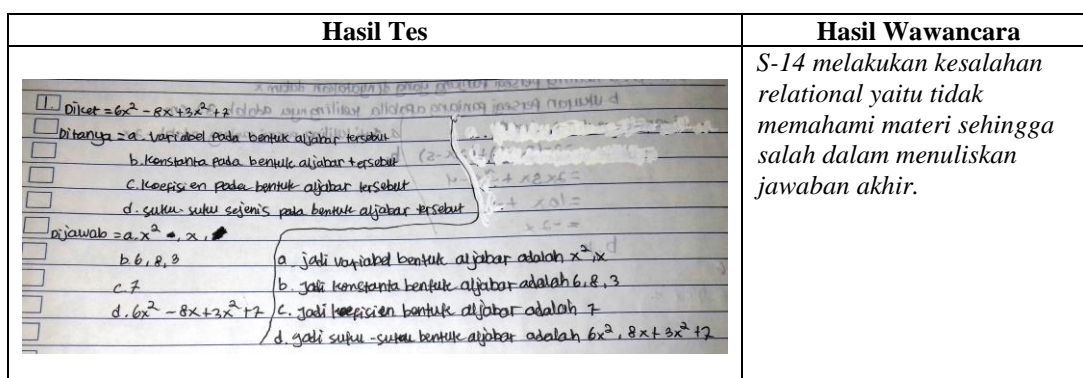 Hasil Tes
Hasil Wawancara
1. Diket = 6x² - 8x + 3x² + 7
Ditanya = a. variabel pada bentuk aljabar tersebut
b. Konstanta pada bentuk aljabar tersebut
c. Koefisien pada bentuk aljabar tersebut
d. suku-suku sejenis pada bentuk aljabar tersebut
Dijawab = a. x², x,
b. 6, 8, 3
c. 7
d. 6x² - 8x + 3x² + 7
a. jadi variabel bentuk aljabar adalah x², x
b. Jadi konstanta bentuk aljabar adalah 6, 8, 3
c. Jadi koefisien bentuk aljabar adalah 7
d. Jadi suku-suku bentuk aljabar adalah 6x², 8x + 3x² + 7
S-14 melakukan kesalahan
relational yaitu tidak
memahami materi sehingga
salah dalam menuliskan
jawaban akhir.